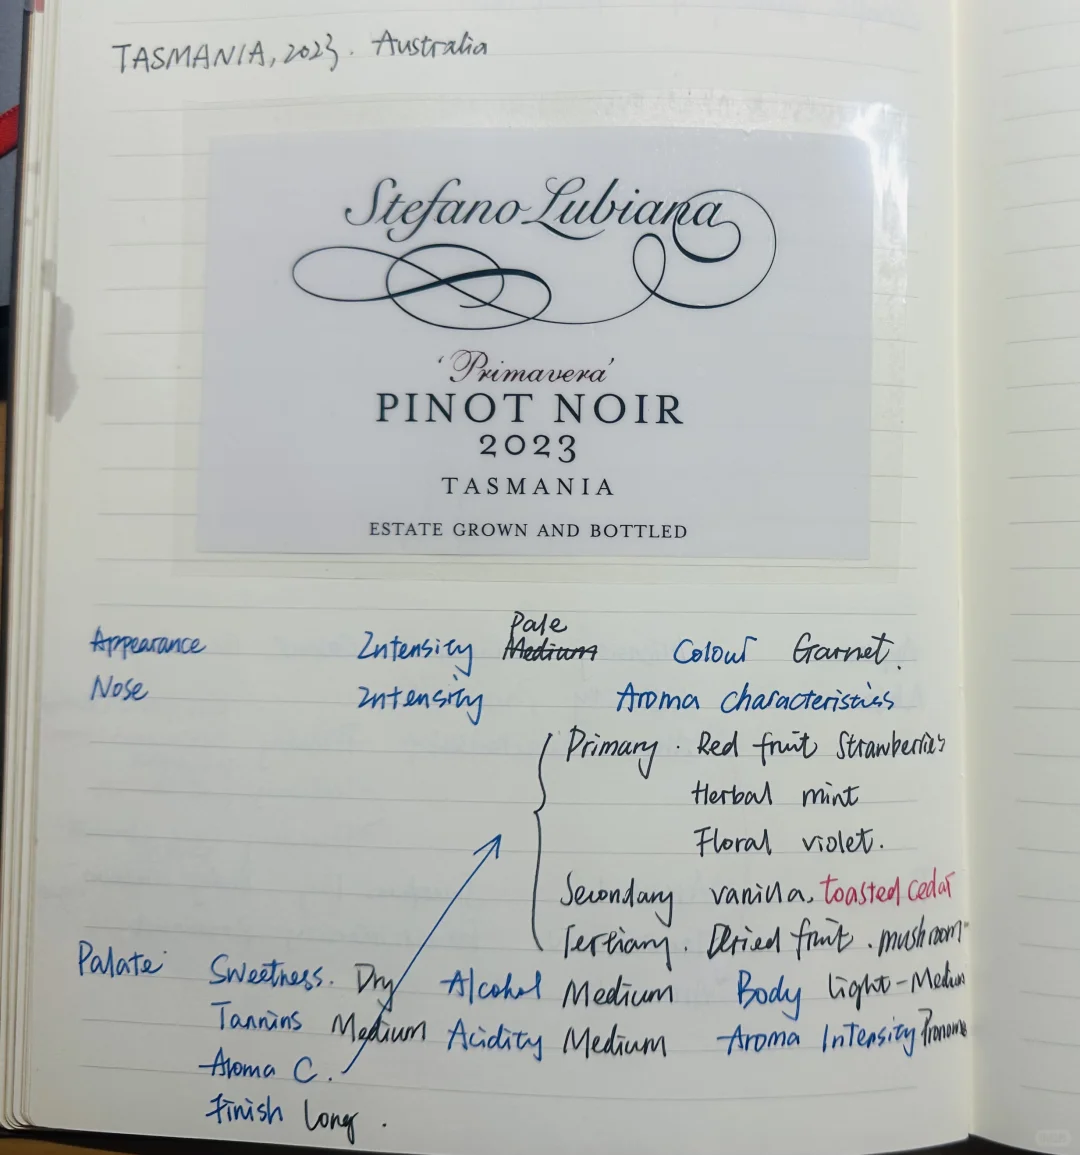 TASMANIA, 2023. Australia
Stefano Lubiana
'Primavera'
PINOT NOIR
2023
TASMANIA
ESTATE GROWN AND BOTTLED
Pale
Appearance Intensity Medium Colour Garnet.
Nose Intensity Aroma characteristics
Primary. Red fruit Strawberries
Herbal mint
Floral violet.
Secondary vanilla, toasted cedar
Tertiary. Dried fruit. mushroom
Palate: Sweetness. Dry Alcohol Medium Body Light-Medium
Tannins Medium Acidity Medium Aroma Intensity
Aroma C.
Finish Long.